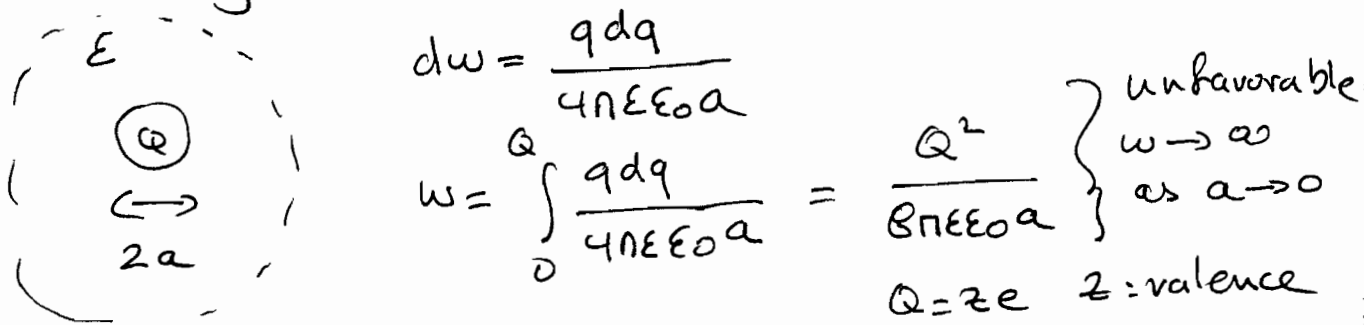 ε
Q
2a
dw = qdq / 4πεε₀a
w = ∫₀^Q qdq / 4πεε₀a = Q² / 8πεε₀a } unfavorable
w → ∞
as a → 0
Q = ze z: valence